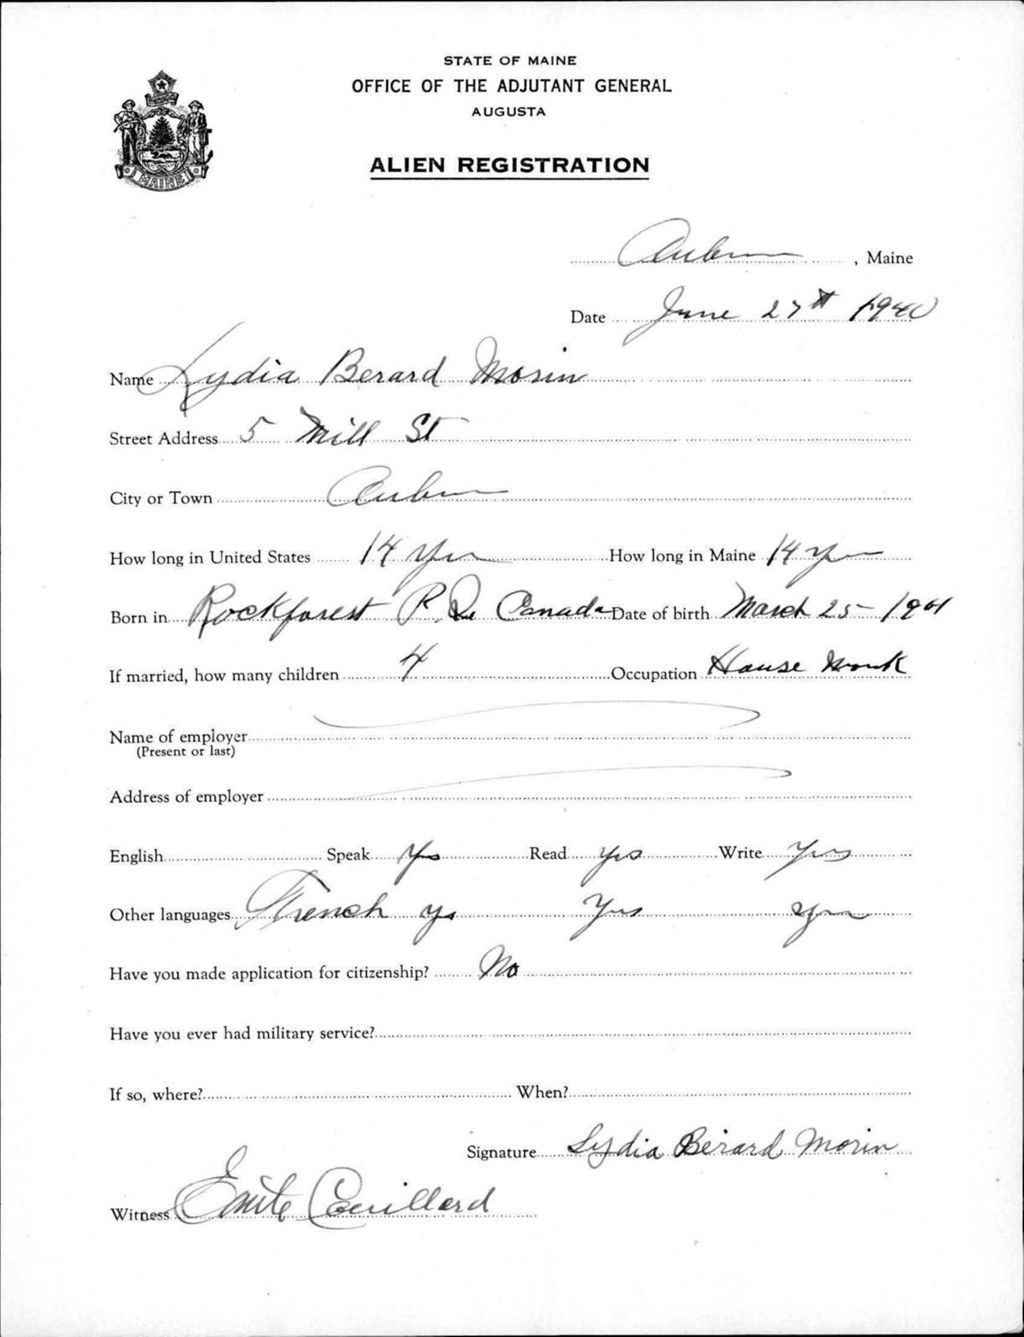 STATE OF MAINE
OFFICE OF THE ADJUTANT GENERAL
AUGUSTA
MAINE
ALIEN REGISTRATION
Auburn, Maine
Date June 27th 1940
Name Lydia Berard Morin
Street Address 5 Mill St
City or Town Auburn
How long in United States 14 yrs How long in Maine 14 yrs
Born in Rockforest P. Que Canada Date of birth March 25 - 1901
If married, how many children 4 Occupation House Work
Name of employer
(Present or last)
Address of employer
English Speak Yes Read Yes Write Yes
Other languages French yes Yes yes
Have you made application for citizenship? No
Have you ever had military service?
If so, where? When?
Signature Lydia Bérard Morin
Witness Emile Couillard